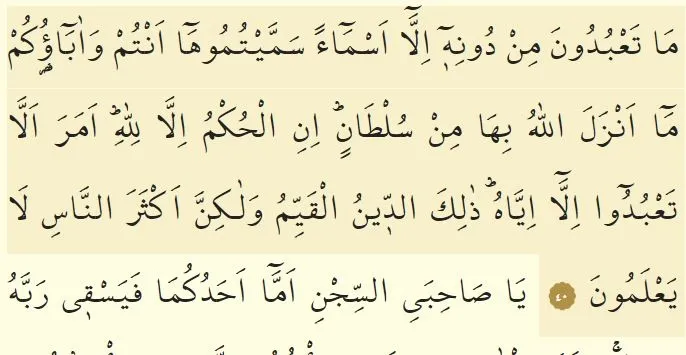 مَا تَعْبُدُونَ مِنْ دُونِهٖٓ اِلَّٓا اَسْمَٓاءً سَمَّيْتُمُوهَٓا اَنْتُمْ وَاٰبَٓاؤُ۬كُمْ
مَٓا اَنْزَلَ اللّٰهُ بِهَا مِنْ سُلْطَانٍؕ اِنِ الْحُكْمُ اِلَّا لِلّٰهِؕ اَمَرَ اَلَّا
تَعْبُدُٓوا اِلَّٓا اِيَّاهُؕ ذٰلِكَ الدّٖينُ الْقَيِّمُ وَلٰكِنَّ اَكْثَرَ النَّاسِ لَا
يَعْلَمُونَ ٤٠ يَا صَاحِبَيِ السِّجْنِ اَمَّٓا اَحَدُكُمَا فَيَسْقٖي رَبَّهُ